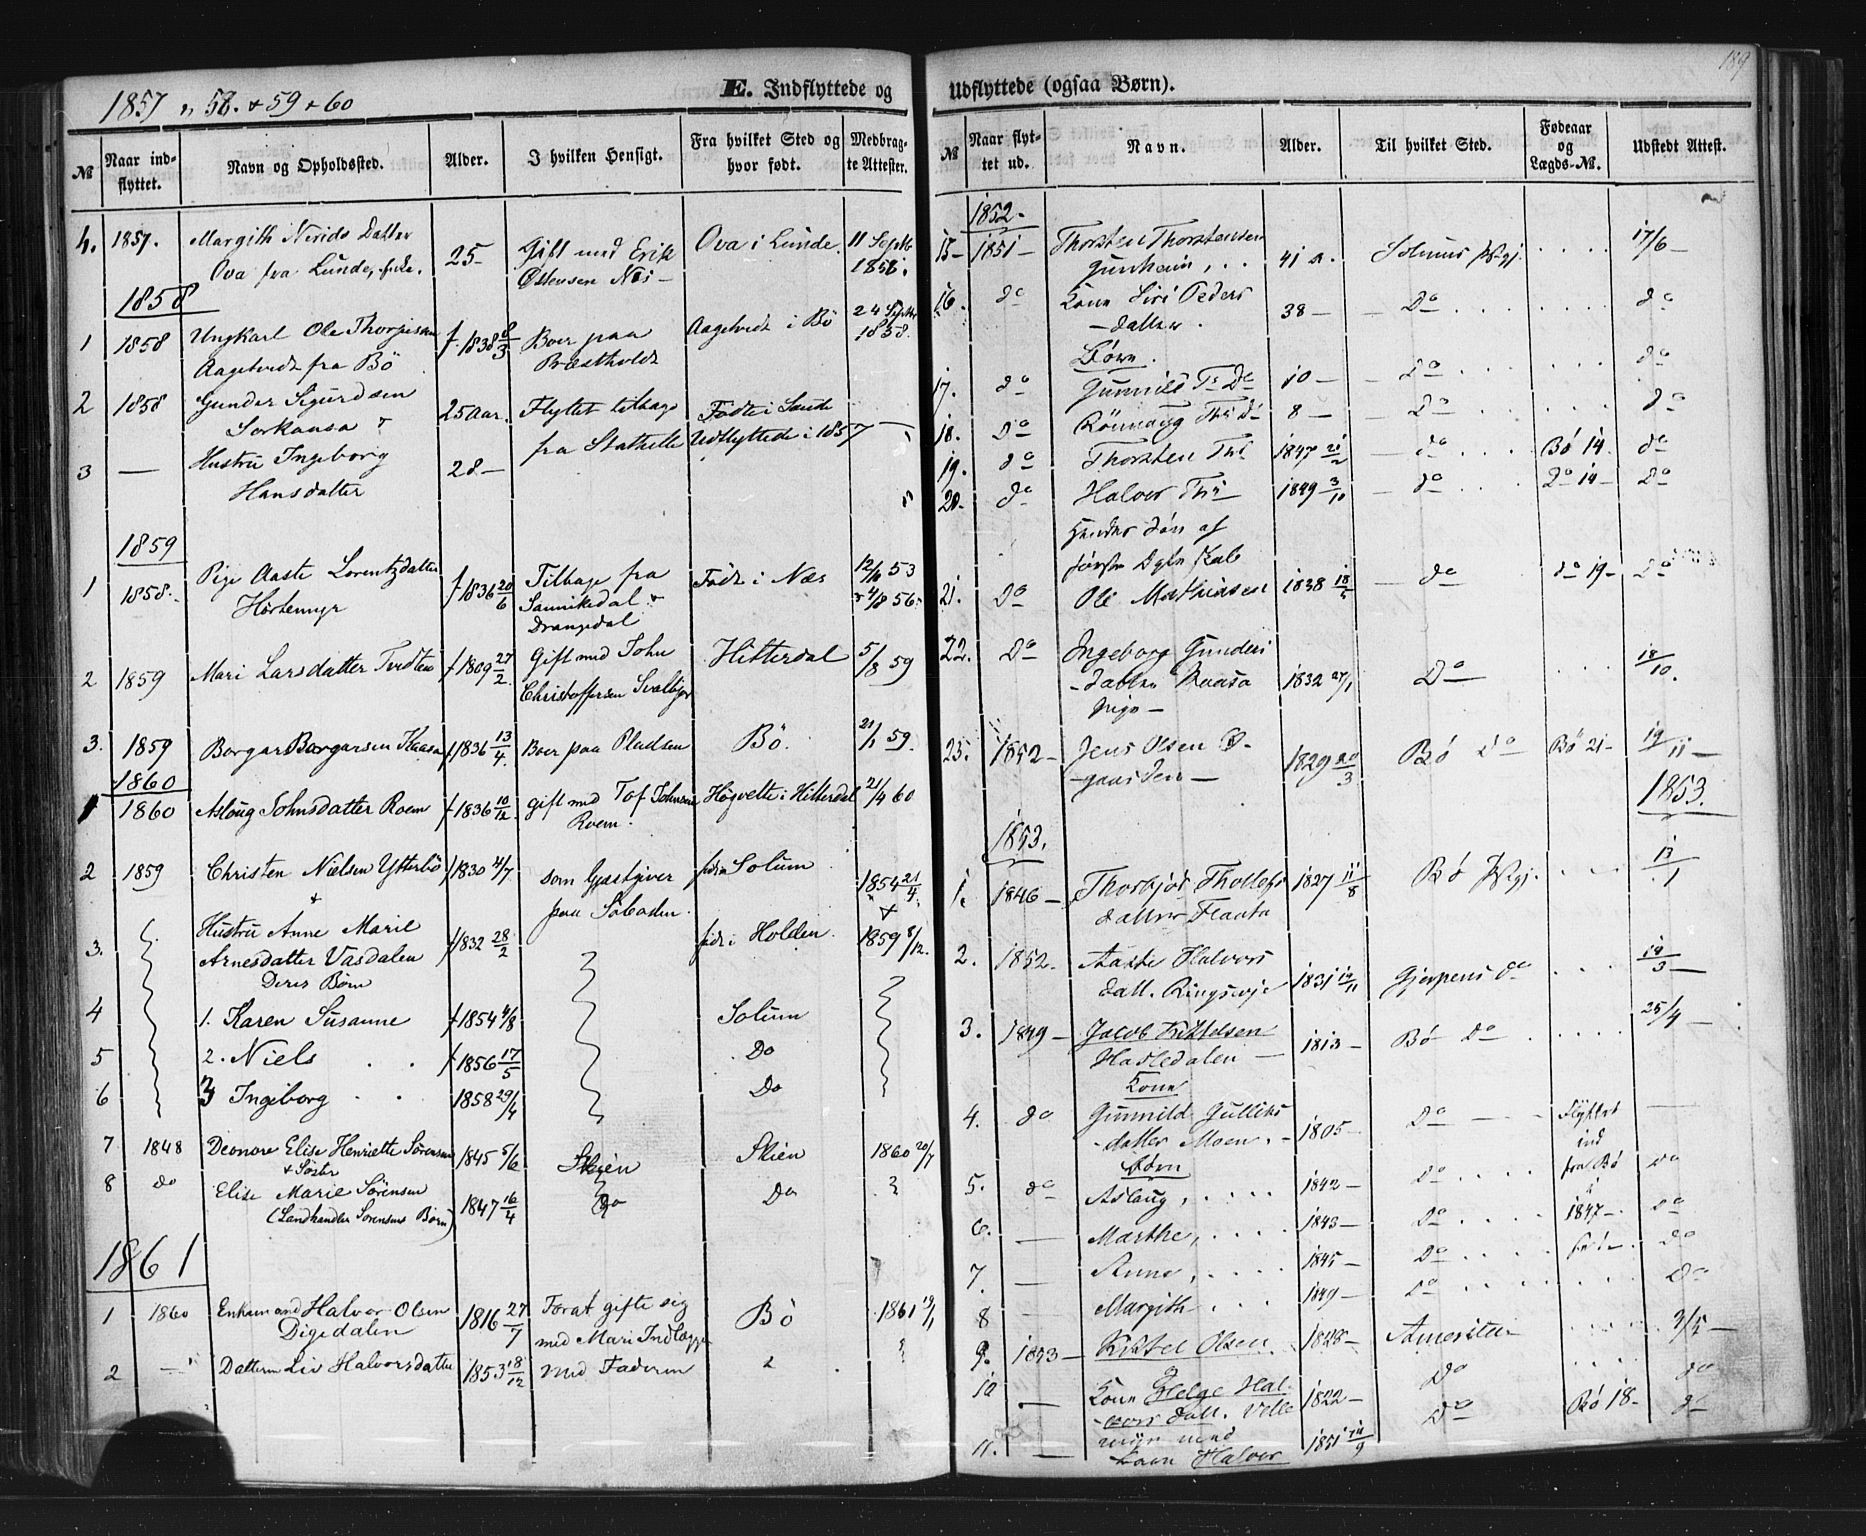 1857, 58. + 59 + 60
E. Indflyttede og
№
Naar ind-
flyttet.
Navn og Opholdssted.
Alder.
I hvilken Hensigt.
Fra hvilket Sted og
hvor født.
Medbrag-
te Attester.
4. 1857. Margith Nerids Datter
Ova fra Lunde,
25- Gift med Erik
Østensen Næs-
Ova i Lunde 11 Septb
1858
1 1858 Ungkarl Ole Thorgiesen
Aagetvedt fra Bö
f. 1838 8/3 Boer paa
Præstholdt
Aagetvedt i Bö 24 Septbr
1858.
2 1858 Gunder Sigurdsen
25 Aar. Flyttet tilbage
fra Stathelle
Födt i
Udflyttede i 1857
3 — Hustru Ingeborg
Hansdatter
28.—
1859
1 1858. Pige Aaste Lorentzdatter
Hörtemyr
f 1836 20/6 Tilbage fra
Sannikedal +
Drangedal
Födt i Næs 12/6 53
+ 4/8 56.
2 1859 Mari Larsdatter Tvedten f 1809 27/2 Gift med John
Christoffersen
Hitterdal 5/8 59
3. 1859 Borgar Borgarsen Kaasa f 1836 13/4. Boer paa Pladsen Bö. 21/1 59.
1860
1 1860 Aslöug Johnsdatter Roem f 1836 10/12. gift med Tof Johnsen
Roem.
Högvette i Hitterdal 21/4 60
2 1859 Christen Nielsen Ytterbö f 1830 4/7 som Gjæstgiver
paa
Solum 1854 21/4.
+
3. Hustru Anne Marie
Arnesdatter Vasdalen
f 1832 28/2 Holden. 1859 8/12.
Deres Børn
4 1. Karen Susanne f 1854 4/8 Solum
5 2. Niels . . f 1856 17/5 Do
6 3 Ingeborg . . 1858 29/4 Do
7 1848 Deonore Elise Henriette Sörensen 1845 5/6 Skien Skien 1860 20/7
+ Söster
8 do Elise Marie Sörensen
(Landhandler Sorensens Børn)
1847 16/4 Do Do
1861
1 1860 Enkemand Halvor Olsen
Digedalen
1816 27/7 Forat gifte sig
med Mari Indlæggen
Bö 1861 19/1
2 — Datteren Liv Halvorsdatter 1853 18/12 Med Faderen
189
Udflyttede (ogsaa Børn).
№
Naar flyt-
tet ud.
Navn.
Alder.
Til hvilket Sted.
Fødeaar
og
Lægds-№.
Udstedt Attest.
1852.
15- 1851- Thorsten Thorstensen
41 a. Solums Præstgj. . . . . 17/6-
16. do Kone Siri Peders
- datter .
38 — Do . . . . do
Börn.
17. do Gunnild Ts Dr 10 — Do . . . . do
18. Do Rönnaug Ths D 8 — Do . . . . do
19. do Thorsten Ths 1847 21/2 do . . . Bö 14. do
20. do Halvor Ths 1849 3/10 do . . . Do 14- Do
21. Do Ole Mathiasen 1838 18/ do do 19- Do
22. Do Ingeborg Gunders
- datter Kaasa
pige —
1832 27/1 Do . . . 18/10.
23. 1852- Jens Olsen
1829 20/3 Bö Do Bö 21- 19/11-
1853.
1853.
1. 1846- Thorbjör Thollefs
datter Flaata
1827 11/8 Bö Præstgj. . . . 13/1
2. 1852. Aaste Halvors
datt.
1831 19/11 Gjerpens do . . . 14/3-
3. 1849- Jacob Kittilsen
Hasledalen —
1813- Bö Do . . . . 25/4-
Kone
4. do Gunnild Gulliks
- datter Moen. -
1805- Do — Flyttet
ind
fra Bö
i
1847-
börn
5. do Aslaug, . . . . 1842- Do . . . . do
6. — Marthe, . . . . 1843- Do . . . . do
7. — Anne, . . . . 1845- Do . . . . do
8 — Margith . . . . 1849- Do . . . . do
9. 1853- Kittel Olsen 1828- Amerika 3/5-
10 — Kone Helge Hal-
- vors datt. Velle
myr med
1822- Do . . . . do
11. — Søn Halvor 1851 14/9 Do Bö 18- do